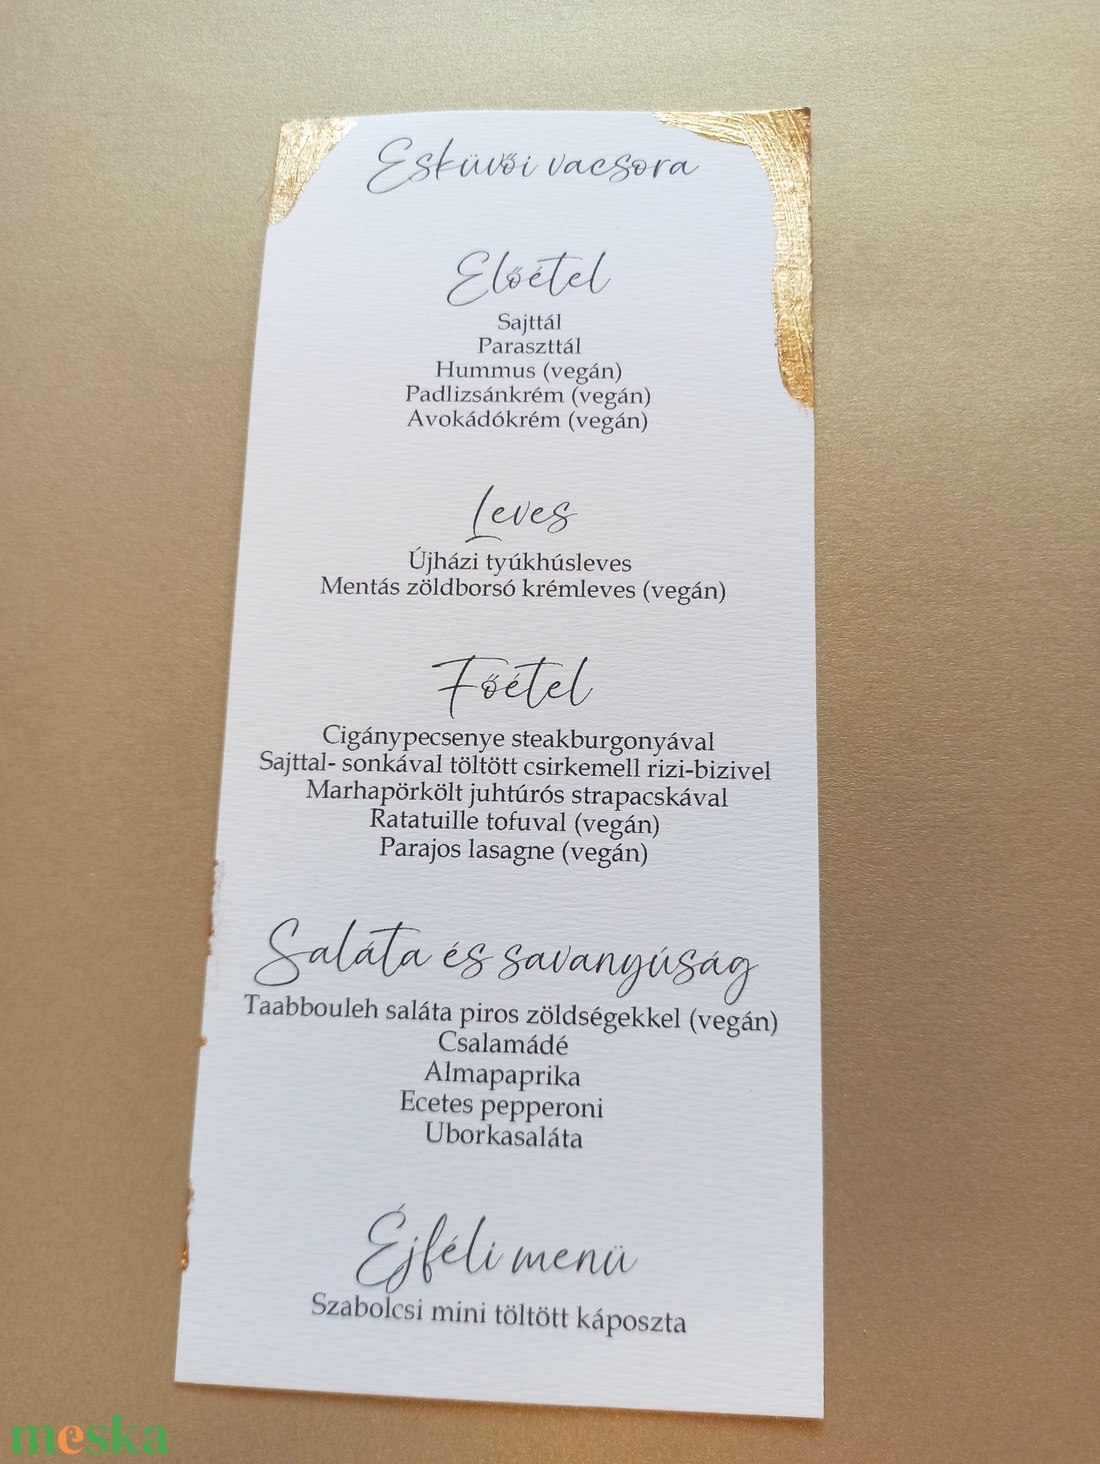 Esküvői vacsora
Előétel
Sajttál
Paraszttál
Hummus (vegán)
Padlizsánkrém (vegán)
Avokádókrém (vegán)
Leves
Újházi tyúkhúsleves
Mentás zöldborsó krémleves (vegán)
Főétel
Cigánypecsenye steakburgonyával
Sajttal- sonkával töltött csirkemell rizi-bizivel
Marhapörkölt juhtúrós strapacskával
Ratatuille tofuval (vegán)
Parajos lasagne (vegán)
Saláta és savanyúság
Taabbouleh saláta piros zöldségekkel (vegán)
Csalamádé
Almapaprika
Ecetes pepperoni
Uborkasaláta
Éjféli menü
Szabolcsi mini töltött káposzta
meska